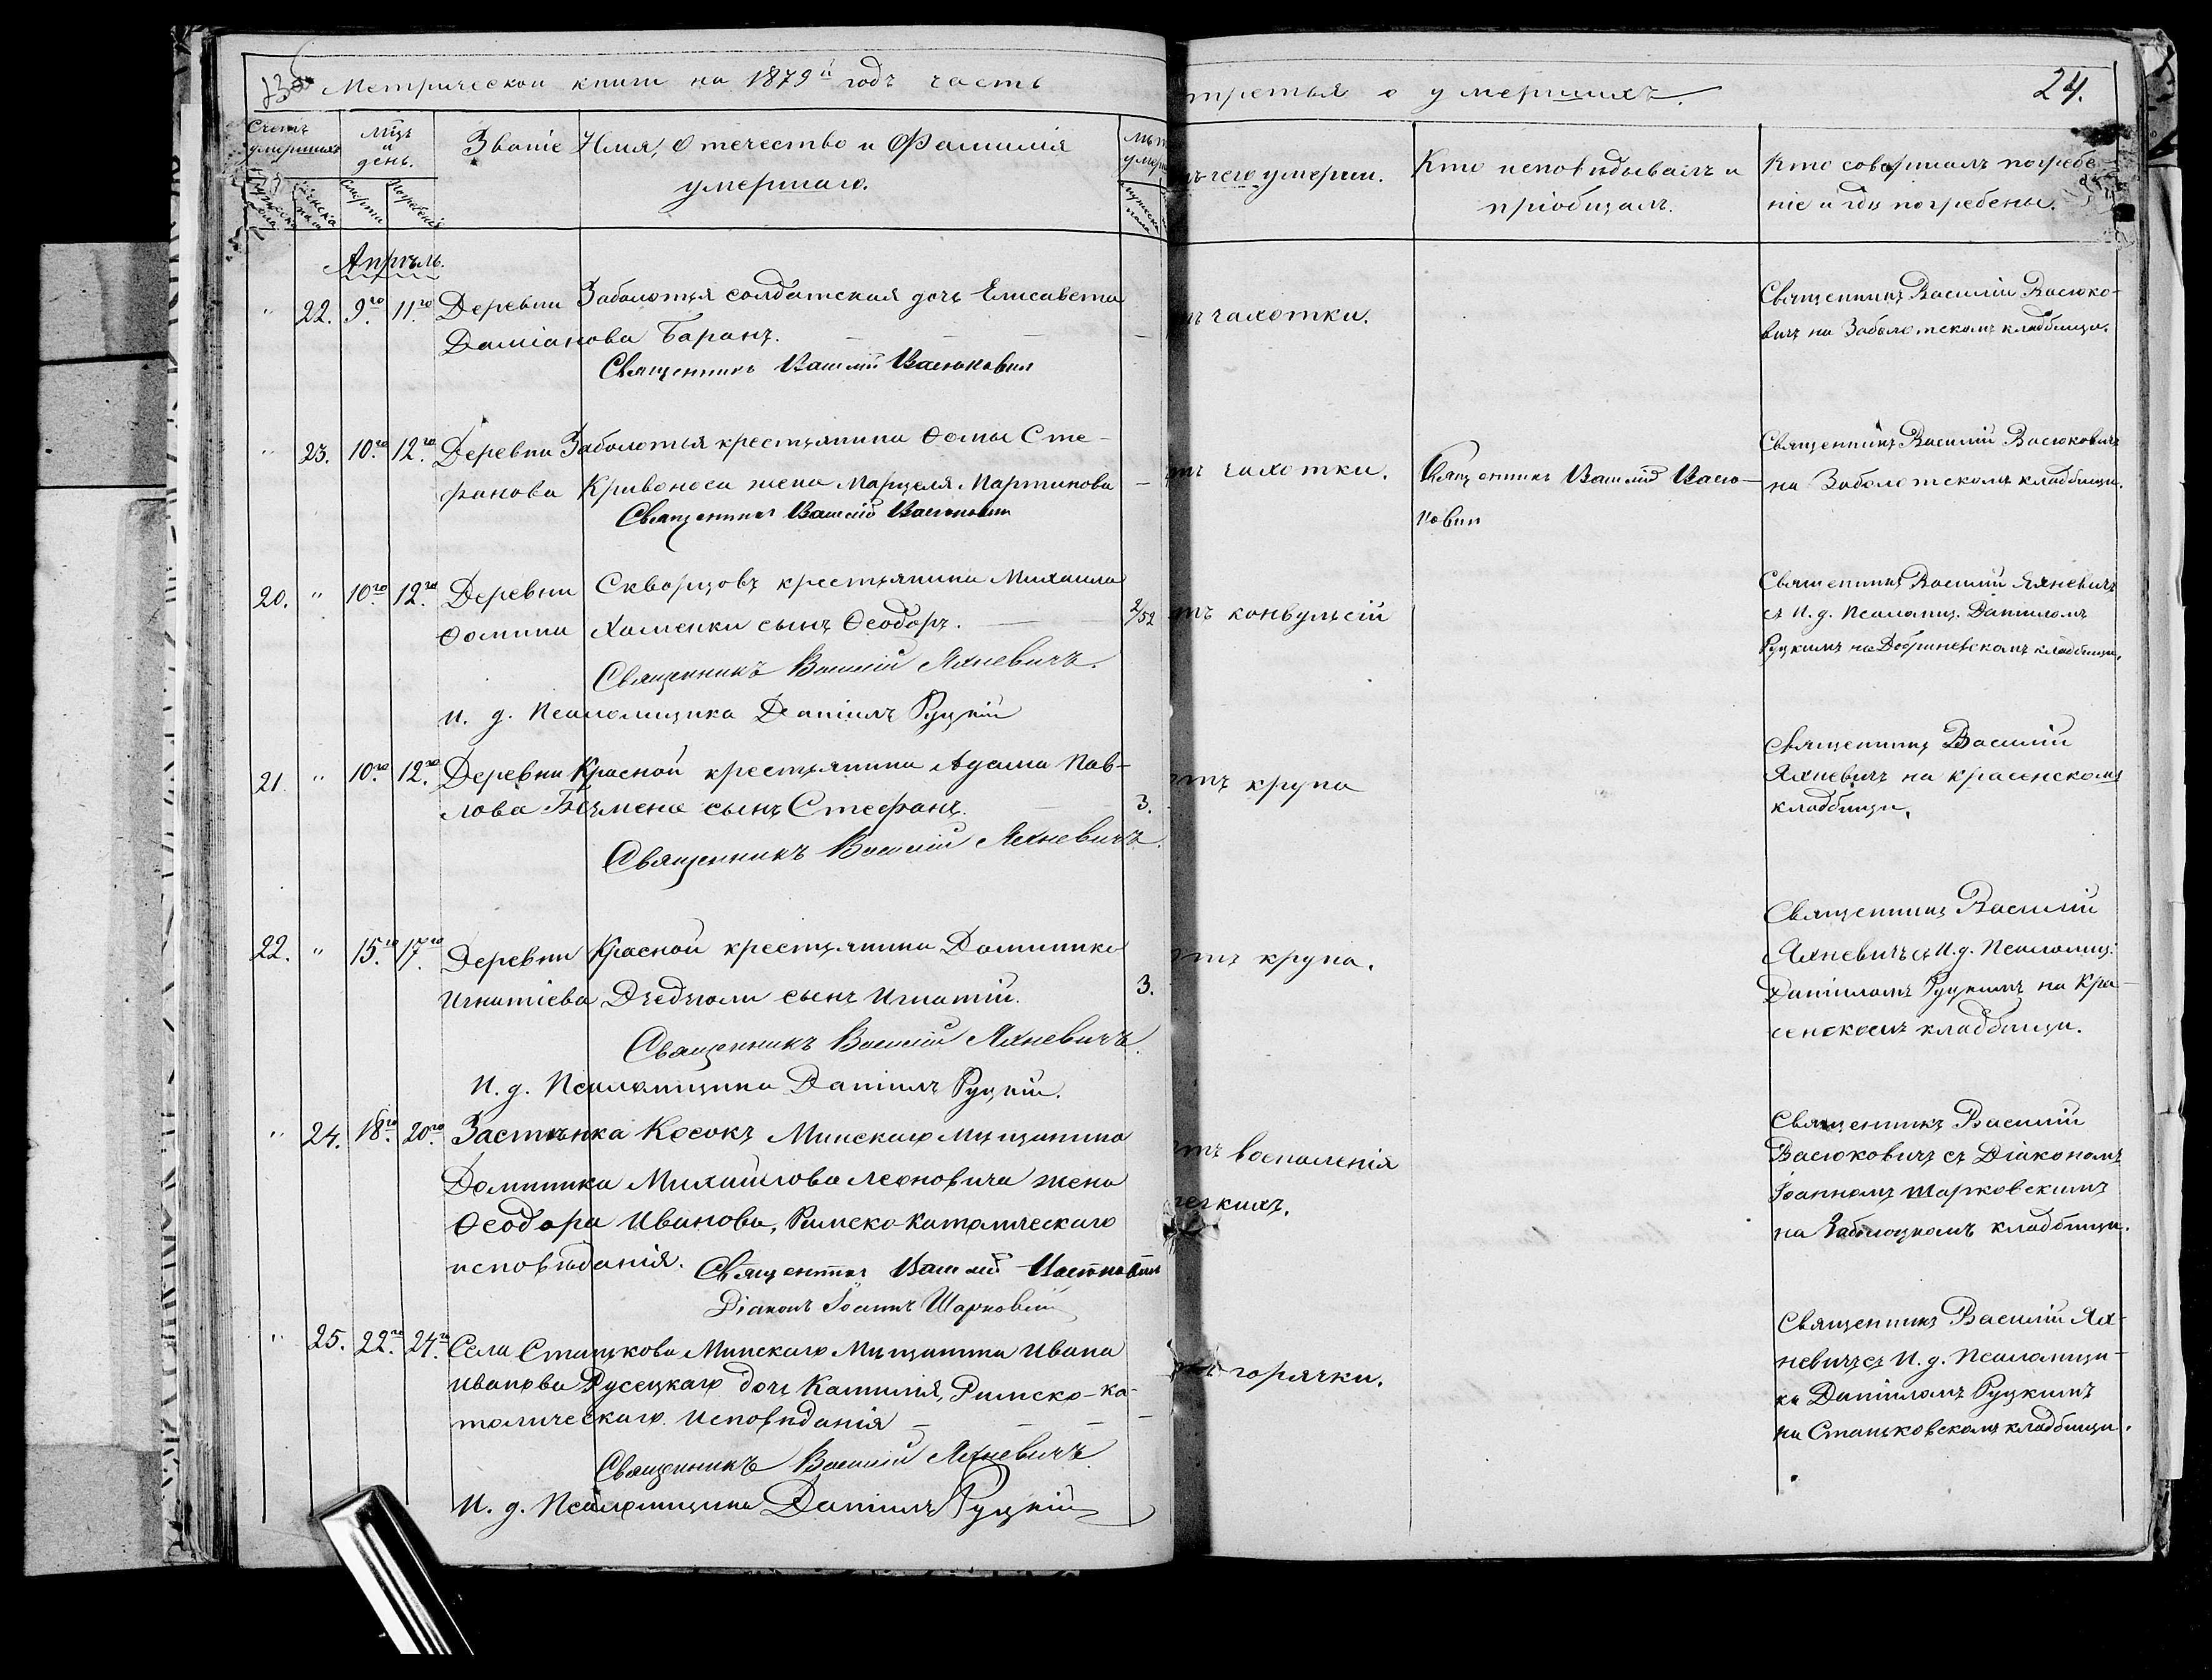 Метрической книги на 1879й годъ часть
третья о умершихъ.
24.
Счетъ умершихъ
Мцъ и день.
Званіе Имя, Отечество и Фамилія
умершаго.
чего умерли.
Кто исповѣдывалъ и
пріобщалъ.
Кто совершалъ погребе-
ніе и гдѣ погребены.
Смерти
Погребенія
Апрѣль.
" 22. 9го 11го Деревни Заболотья солдатская дочь Елисавета
Даміанова Баранъ. —
Священникъ Василій Васюковичъ
чахотки.
Священникъ Василій Васюко-
вичъ на Заболотскомъ кладбищѣ.
" 23. 10го 12го Деревни Заболотья крестьянина Ѳомы Сте-
фанова Кривоноса жена Марцеля Мартинова —
Священникъ Василій Васюковичъ
чахотки.
Священникъ Василій Васю-
ковичъ
Священникъ Василій Васюковичъ
на Заболотскомъ кладбищѣ.
20. " 10го 12го Деревни Скворцовъ крестьянина Михаила
Ѳомина Хоменки сынъ Ѳеодоръ. — 2/52
Священникъ Василій Яхневичъ.
И. д. Псаломщика Даніилъ Руцкій
отъ конвульсій
Священникъ Василій Яхневичъ
съ И. д. Псаломщ. Даніиломъ
Руцкимъ на Добриневскомъ кладбищѣ.
21. " 10го 12го Деревни Красной крестьянина Адама Пав-
лова сынъ Стефанъ. — 3.
Священникъ Василій Яхневичъ.
отъ крупа
Священникъ Василій
Яхневичъ на Красенскомъ
кладбищѣ.
22. " 15го 17го Деревни Красной крестьянина Доминика
Игнатіева Дзедзюли сынъ Игнатій. 3.
Священникъ Василій Яхневичъ.
И. д. Псаломщика Даніилъ Руцкій.
отъ крупа.
Священникъ Василій
Яхневичъ съ И. д. Псаломщ.
Даніиломъ Руцкимъ на Кра-
сенскомъ кладбищѣ.
" 24. 18го 20го Застѣнка Косокъ Минскаго Мѣщанина
Доминика Михайлова Леоновича жена
Ѳеодора Иванова, Римско-Католическаго
исповѣданія. Священникъ Василій Васюковичъ
Діаконъ Іоаннъ Шарковскій
отъ воспаленія
легкихъ.
Священникъ Василій
Васюковичъ съ Діакономъ
Іоанномъ Шарковскимъ
на Заболоцкомъ кладбищѣ.
" 25. 22го 24го Села Станькова Минскаго Мѣщанина Ивана
Иванова Русецкаго дочь Камилія, Римско-ка-
толическаго Исповѣданія —
Священникъ Василій Яхневичъ
И. д. Псаломщика Даніилъ Руцкій
горячки.
Священникъ Василій Ях-
невичъ съ И. д. Псаломщи-
ка Даніиломъ Руцкимъ
на Станьковскомъ кладбищѣ.